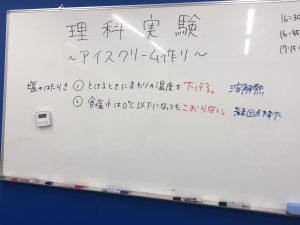 理科実験
～アイスクリーム作り～
塩のはたらき ① とけるときにまわりの温度を下げる。 溶解熱
② 食塩水は0℃以下になってもこおらない。 凝固点降下
16:30
16:45